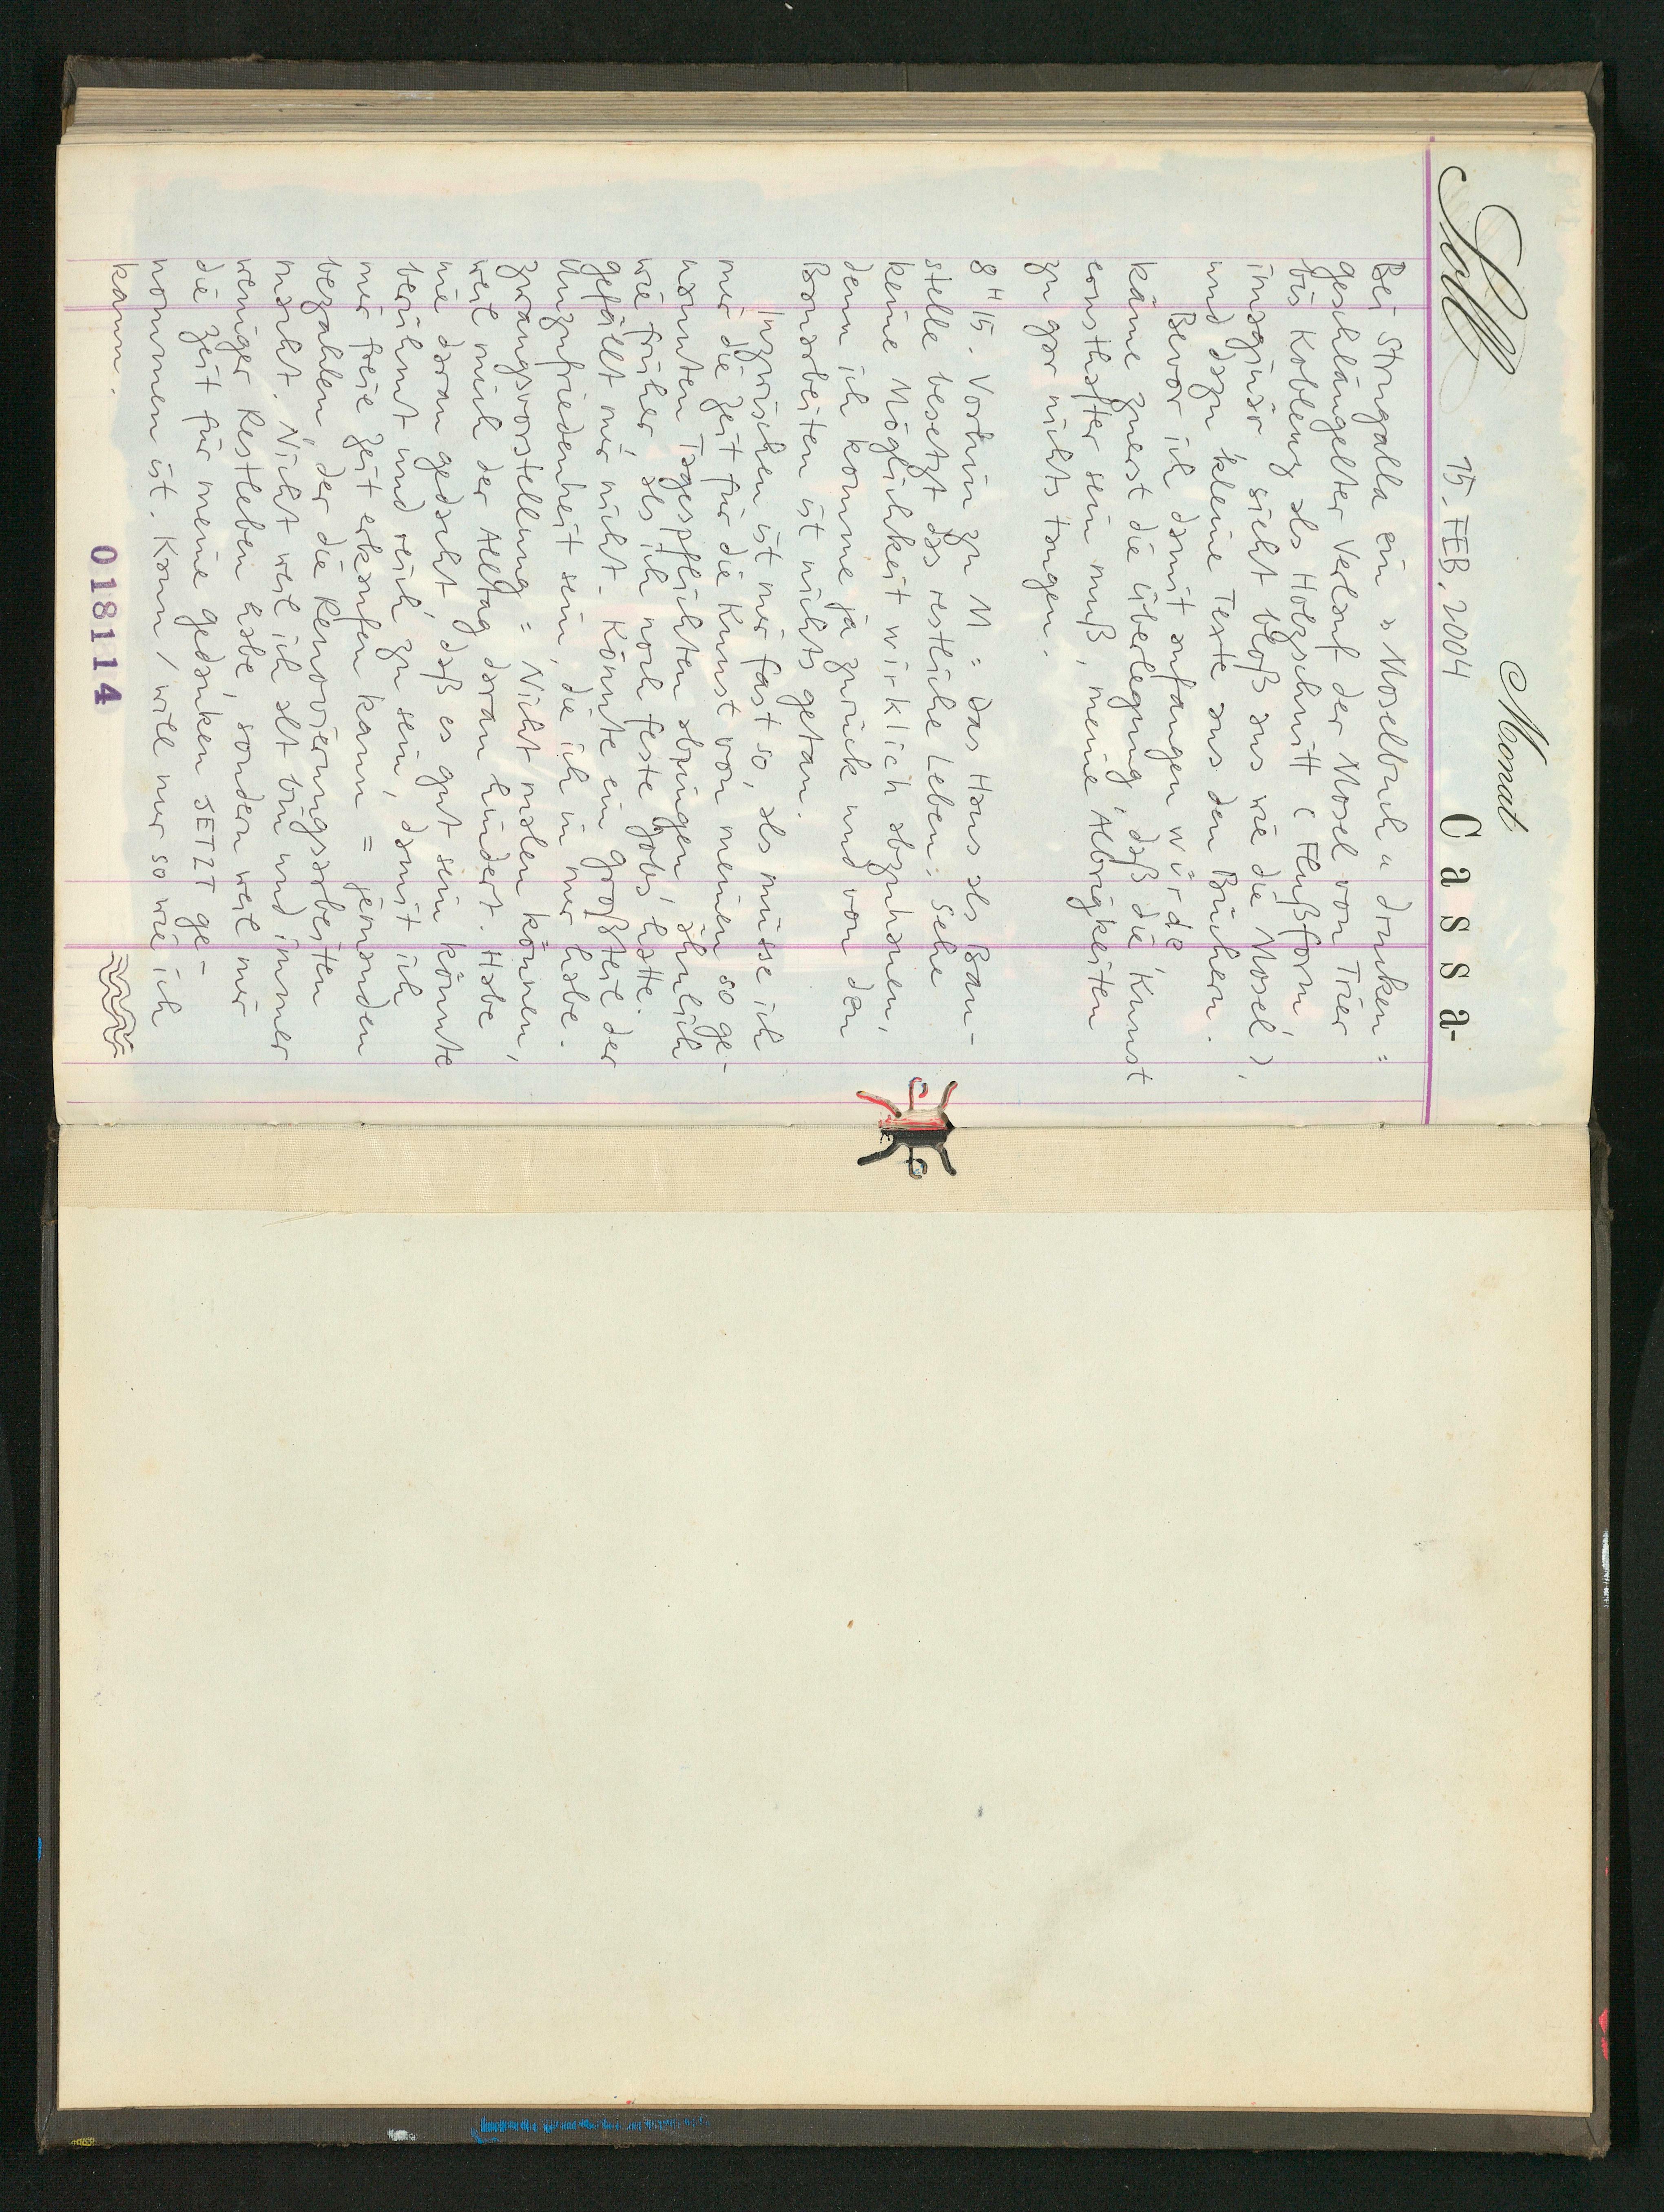 Soll
Monat
Cassa-
15. FEB. 2004
Bei Strugalla ein » Moselbuch « drucken :
geschlängelter Verlauf der Mosel von Trier
bis Koblenz als Holzschnitt ( Flußform,
imaginär sieht bloß aus wie die Mosel ),
und dazu kleine Texte aus den Büchern.
Bevor ich damit anfangen würde
käme zuerst die Überlegung, daß die Kunst
ernsthafter sein muß, meine Albrigkeiten
zu gar nichts taugen.
8 H 15. Vorhin zu M : Das Haus als Bau-
stelle besetzt das restliche Leben : Sehe
keine Möglichkeit wirklich abzuhauen,
denn ich komme ja zurück und von den
Bauarbeiten ist nichts getan.
Inzwischen ist mir fast so, als müsse ich
mir die Zeit für die Kunst von meinen so ge-
nannten Tagespflichten abzwingen, ähnlich
wie früher, als ich noch feste Jobs hatte.
Gefällt mir nicht. Könnte ein Großteil der
Unzufriedenheit sein, die ich in mir habe.
Zwangsvorstellung = Nicht malen können,
weil mich der Alltag daran hindert. Habe
nie daran gedacht, daß es gut sein könnte
berühmt und reich zu sein, damit ich
mir freie Zeit erkaufen kann = jemanden
bezahlen der die Renovierungsarbeiten
macht. Nicht weil ich alt bin und immer
weniger Restleben habe, sondern weil mir
die Zeit für meine Gedanken JETZT ge-
nommen ist. Kann / will nur so wie ich
kann.
018114